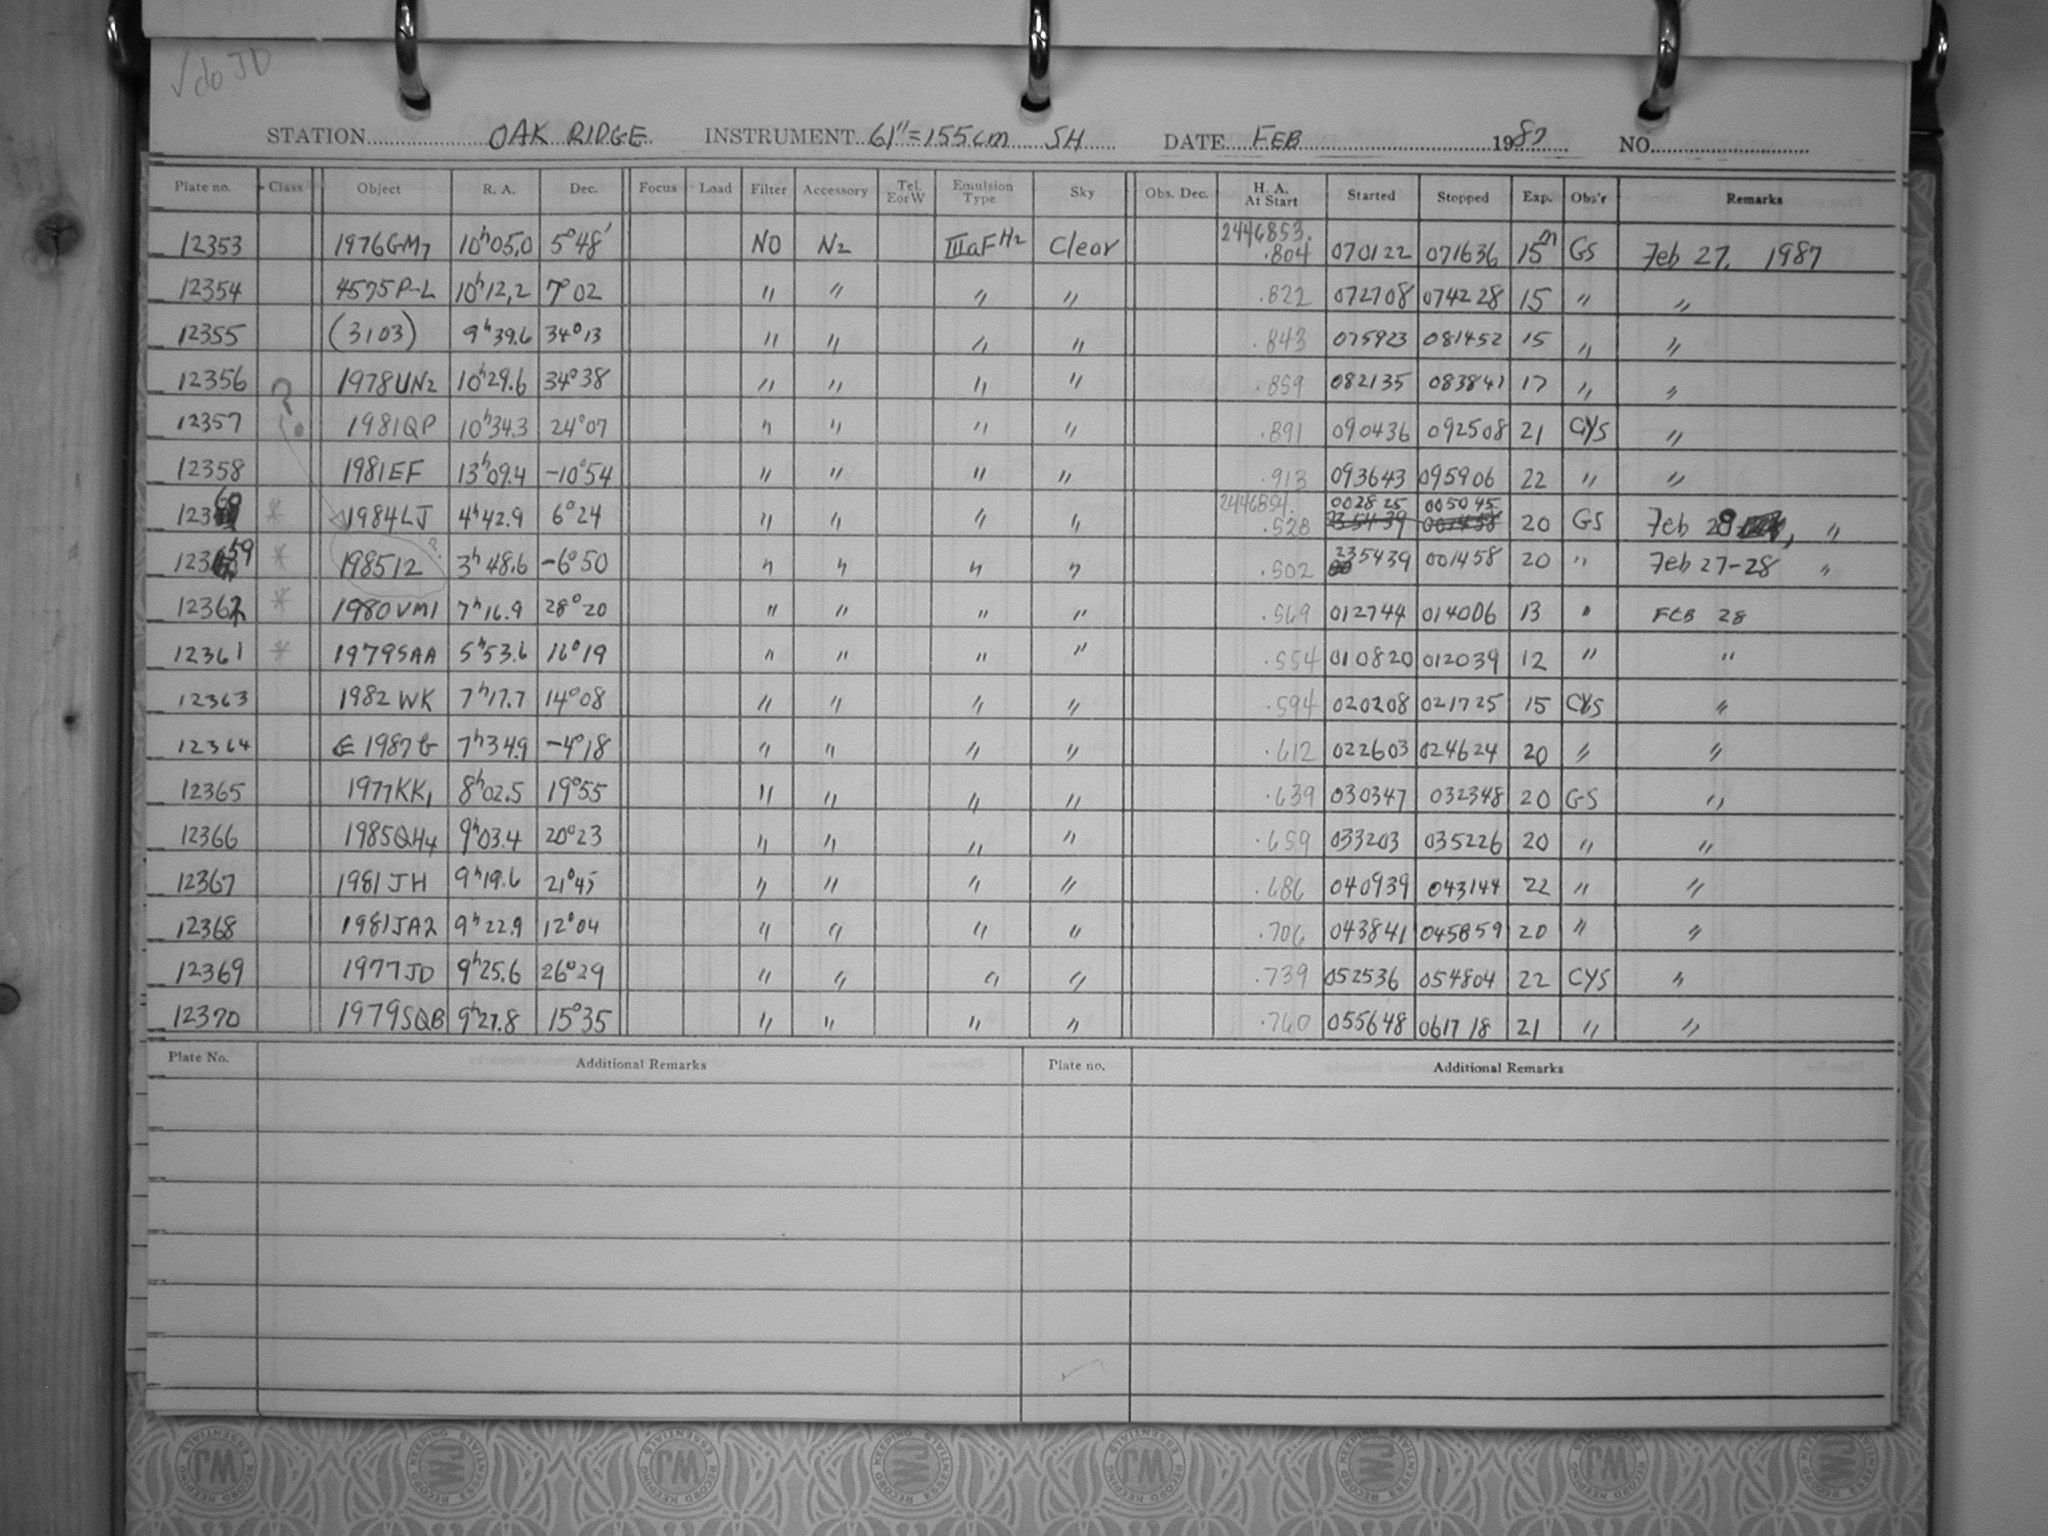 √do JD
STATION OAK RIDGE INSTRUMENT 61"=155cm SH DATE FEB 1987 NO.
Plate no. Class Object R. A. Dec. Focus Load Filter Accessory Tel. E or W Emulsion Type Sky Obs. Dec. H. A. At Start Started Stopped Exp. Obs'r Remarks
12353 1976GM7 10h05.0 5°48' NO N2 IIIaFH2 Clear 2446853. .804 070122 071636 15m GS Feb 27, 1987
12354 4575P-L 10h12.2 7°02 " " " " .822 072708 074228 15 " "
12355 (3103) 9h39.6 34°13 " " " " .843 075923 081452 15 " "
12356 1978UN2 10h29.6 34°38 " " " " .859 082135 083841 17 " "
12357 ? 1981QP 10h34.3 24°07 " " " " .891 090436 092508 21 CYS "
12358 1981EF 13h09.4 -10°54 " " " " .913 093643 095906 22 " "
12360 * 1984LJ 4h42.9 6°24 " " " " 2446854. .528 002825 005045 235439 001458 20 GS Feb 28, "
12359 * 198512 ? 3h48.6 -6°50 " " " " .502 235439 001458 20 " Feb 27-28 "
12362 * 1980VM1 7h16.9 28°20 " " " " .569 012744 014006 13 " FEB 28
12361 * 1979SAA 5h53.6 16°19 " " " " .554 010820 012039 12 " "
12363 1982 WK 7h17.7 14°08 " " " " .594 020208 021725 15 CYS "
12364 1987G 7h34.9 -4°18 " " " " .612 022603 024624 20 " "
12365 1977KK1 8h02.5 19°55 " " " " .639 030347 032348 20 GS "
12366 1985QH4 9h03.4 20°23 " " " " .659 033203 035226 20 " "
12367 1981 JH 9h19.6 21°45 " " " " .686 040939 043144 22 " "
12368 1981JA2 9h22.9 12°04 " " " " .706 043841 045859 20 " "
12369 1977JD 9h25.6 26°29 " " " " .739 052536 054804 22 CYS "
12370 1979SQB 9h27.8 15°35 " " " " .760 055648 061718 21 " "
Plate No. Additional Remarks Plate no. Additional Remarks